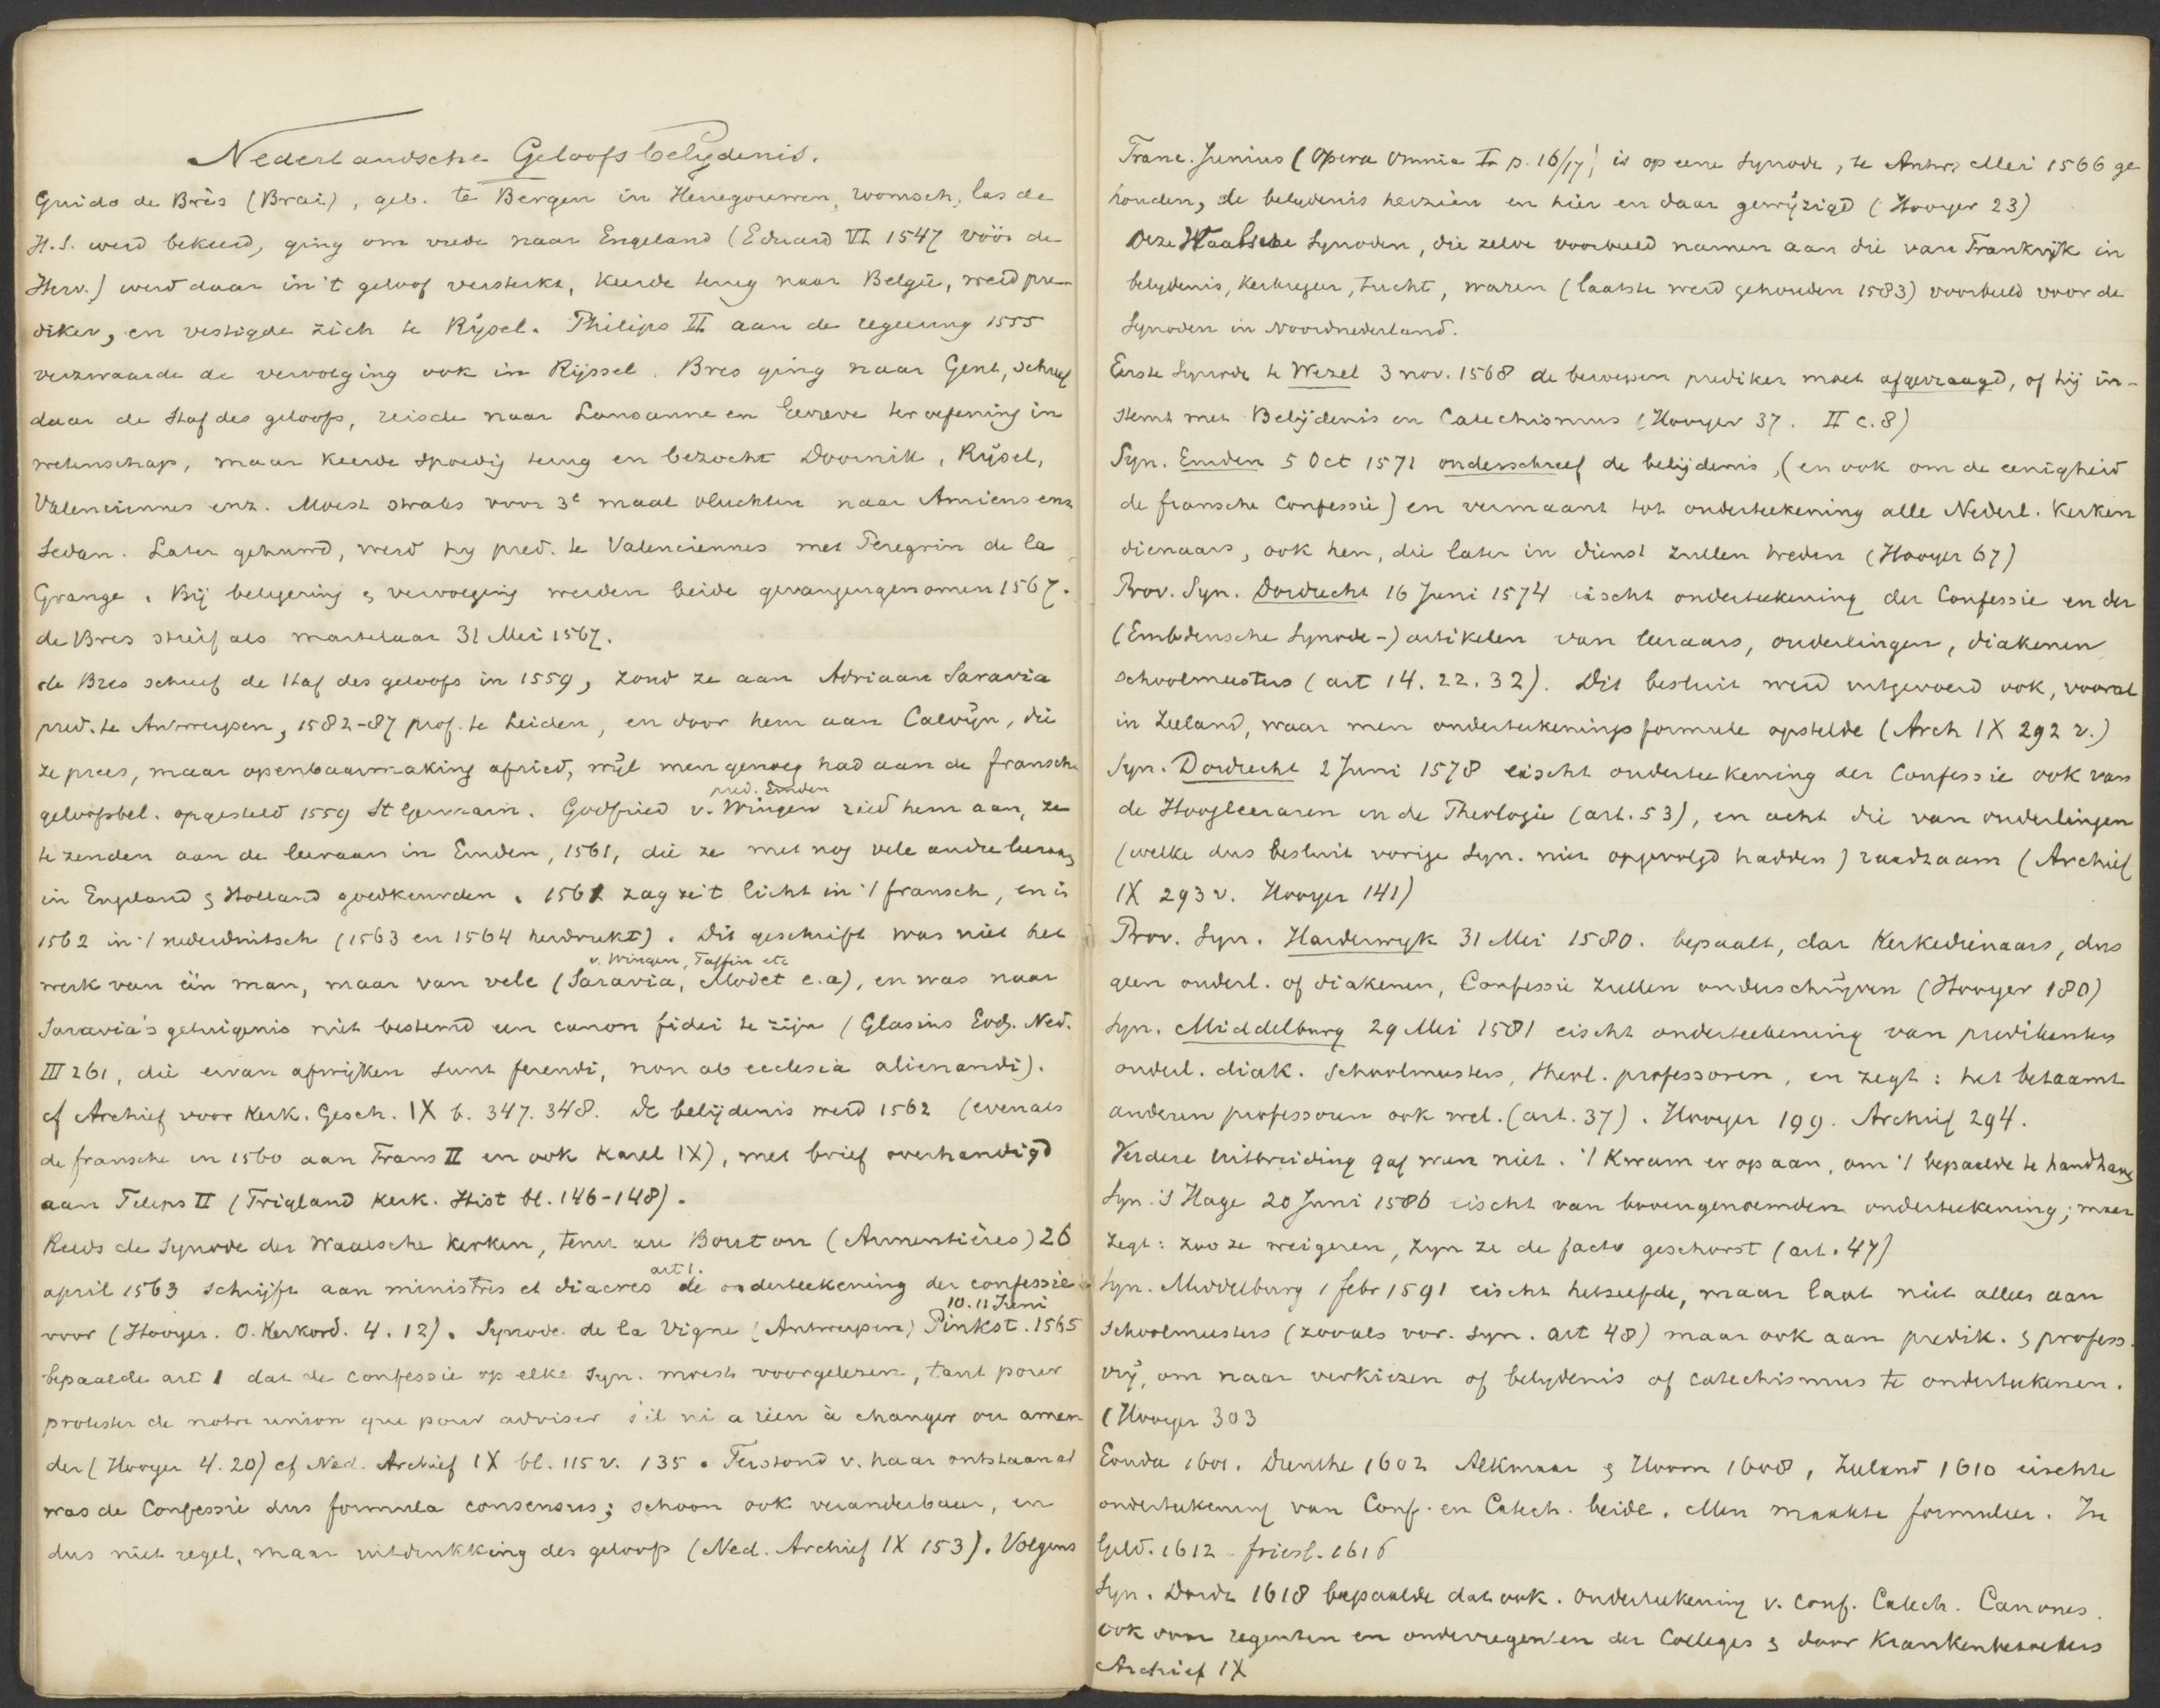 Nederlandsche Geloofsbelydenis.
Guido de Brès (Brai), geb. te Bergen in Henegouwen, roomsch, las de
H.S. werd bekeerd, ging om vrede naar Engeland (Eduard VI 1547 vóór de
Herv.) werd daar in 't geloof versterkt, keerde terug naar België, werd pre-
diker, en vestigde zich te Rijsel. Philips II aan de regeering 1555
verzwaarde de vervolging ook in Rijssel. Bres ging naar Gent, schreef
daar de Staf des geloofs, reisde naar Lausanne en Geneve ter oefening in
wetenschap, maar keerde spoedig terug en bezocht Doornik, Rijsel,
Valenciennes enz. Moest straks voor 3e maal vluchten naar Amiens en
Sedan. Later gehuwd, werd hy pred. te Valenciennes met Peregrin de la
Grange. Bij belegering & vervolging werden beide gevangengenomen 1567.
de Bres stierf als martelaar 31 Mei 1567.
de Bres schreef de Staf des geloofs in 1559, zond ze aan Adriaan Saravia
pred. te Antwerpen, 1582-87 prof. te Leiden, en door hem aan Calvijn, die
ze prees, maar openbaarmaking afried, wijl men genoeg had aan de fransche
pred. Emden
geloofsbel. opgesteld 1559 St Germain. Godfried v. Wingen ried hem aan, ze
te zenden aan de leeraars in Emden, 1561, die ze met nog vele andre leeraars
in Engeland & Holland goedkeurden. 1561 zag ze 't licht in 't fransch, en in
1562 in 't nederduitsch (1563 en 1564 herdrukt). Dit geschrift was niet het
v. Wingen, Taffin etc
werk van één man, maar van vele (Saravia, Modet e.a), en was naar
Saravia's getuigenis niet bestemd een canon fidei te zijn (Glasius Godg. Ned.
III 261, die ervan afwijken sunt ferendi, non ab ecclesia alienandi).
cf Archief voor Kerk. Gesch. IX b. 347. 348. De belijdenis werd 1562 (evenals
de fransche in 1560 aan Frans II en ook Karel IX), met brief overhandigd
aan Filips II (Trigland Kerk. Hist bl. 146-148).
Reeds de Synode der Waalsche Kerken, tenu au Bouton (Armentières) 26
art 1.
april 1563 schrijft aan ministres et diacres de onderteekening der confessie
10. 11 Juni
voor (Hooyer. O. Kerkord. 4. 12). Synode de la Vigne (Antwerpen) Pinkst. 1565
bepaalde art 1 dat de confessie op elke Syn. moest voorgelezen, tant pour
protester de notre union que pour adviser s'il ni a rien à changer ou amen
der (Hooyer 4. 20) cf Ned. Archief IX bl. 115 v. 135. Terstond v. haar ontstaan af
was de Confessie dus formula consensus; schoon ook veranderbaar, en
dus niet regel, maar uitdrukking des geloofs (Ned. Archief IX 153). Volgens
Franc. Junius (Opera Omnia I p. 16/17) is op eene Synode, te Antw. Mei 1566 ge
houden, de belydenis herzien en hier en daar gewijzigd (Hooyer 23)
Deze Waalsche Synoden, die zelve voorbeeld namen aan die van Frankrijk in
belydenis, Kerkregeer, tucht, waren (laatste werd gehouden 1583) voorbeeld voor de
Synoden in Noordnederland.
Eerste Synode te Wezel 3 nov. 1568 de beroepen prediker moet afgevraagd, of hij in-
stemt met Belijdenis en Catechismus (Hooyer 37. II c. 8)
Syn. Emden 5 Oct 1571 onderschreef de belijdenis, (en ook om de eenigheid
de fransche Confessie) en vermaant tot onderteekening alle Nederl. Kerken
dienaars, ook hen, die later in dienst zullen treden (Hooyer 67)
Prov. Syn. Dordrecht 16 Juni 1574 eischt onderteekening der Confessie en der
(Embdensche Synode-) artikelen van leeraars, ouderlingen, diakenen
schoolmeesters (art 14. 22. 32). Dit besluit werd uitgevoerd ook, vooral
in Zeeland, waar men onderteekenings formule opstelde (Arch IX 292 v.)
Syn. Dordrecht 2 Juni 1578 eischt onderteekening der Confessie ook van
de Hoogleeraren in de Theologie (art. 53), en acht die van ouderlingen
(welke dus besluit vorige Syn. niet opgevolgd hadden) raadzaam (Archief
IX 293 v. Hooyer 141)
Prov. Syn. Harderwyk 31 Mei 1580. bepaalt, dat Kerkedienaars, dus
geen ouderl. of diakenen, Confessie zullen onderschrijven (Hooyer 180)
Syn. Middelburg 29 Mei 1581 eischt onderteekening van predikanten
ouderl. diak. schoolmeesters, theol. professoren, en zegt: het betaamt
anderen professoren ook wel. (art. 37). Hooyer 199. Archief 294.
Verdere uitbreiding gaf men niet. 't Kwam er op aan, om 't bepaalde te handhaven
Syn. 's Hage 20 Juni 1586 eischt van bovengenoemden onderteekening; maar
zegt: zoo ze weigeren, zyn ze de facto geschorst (art. 47)
Syn. Middelburg 1 febr 1591 eischt hetzelfde, maar laat niet alleen aan
schoolmeesters (zooals vor. Syn. art 48) maar ook aan predik. & profess.
vrij, om naar verkiezen of belydenis of catechismus te onderteekenen.
(Hooyer 303
Gouda 1601. Drenthe 1602 Alkmaar & Hoorn 1608, Zeeland 1610 eischte
onderteekening van Conf. en Catech. beide. Men maakte formulier. In
Geld. 1612 friesl. 1616
Syn. Dordr 1618 bepaalde dat ook. onderteekening v. Conf. Catech. Canones.
ook voor regenten en onderregenten der Colleges & door Krankenbezoekers
Archief IX